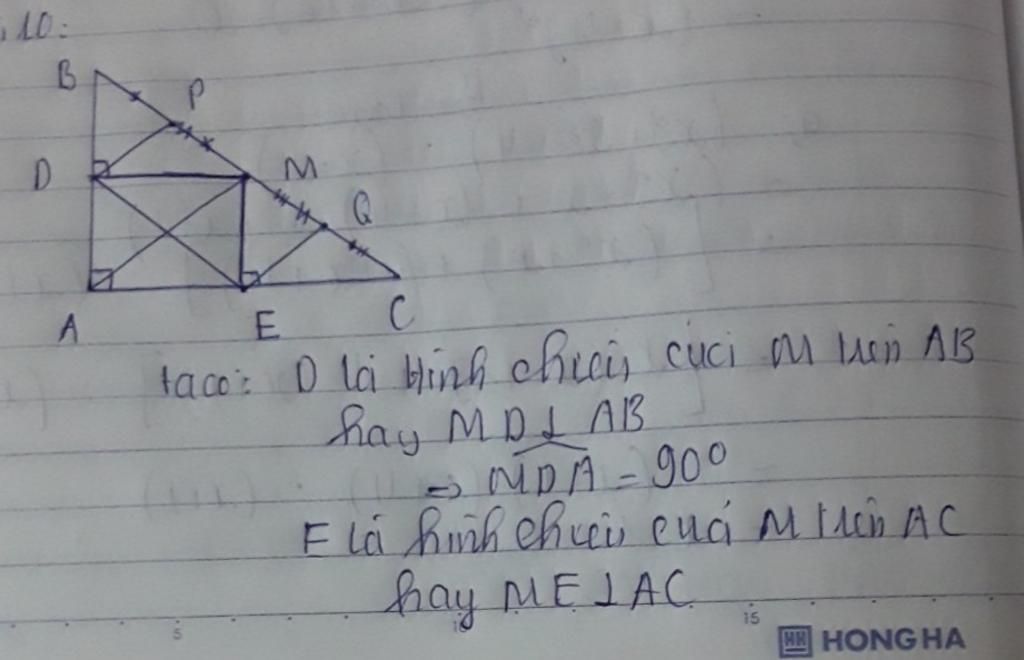 10:
B
P
D
M
Q
A
E
C
taco: D là hình chiếu của M lên AB
hay MD⊥ AB
=> \widehat{MDA} = 90°
E là hình chiếu của M lên AC
hay ME⊥AC
5
10
15
HH HONG HA